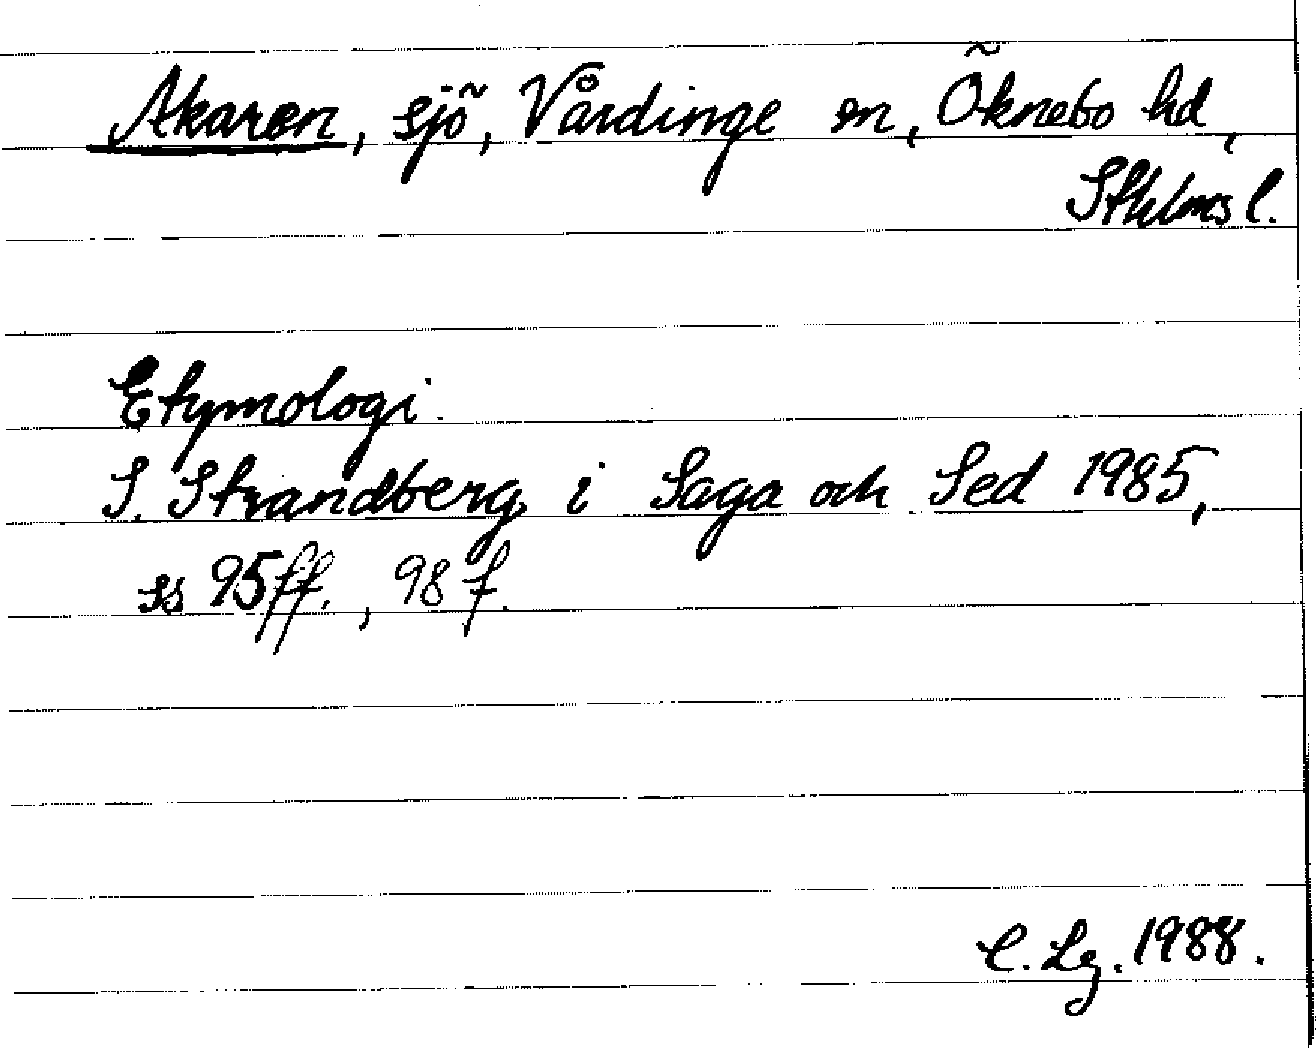 Akaren, sjö, Vårdinge sn, Öknebo hd,
Sthlms l.
Etymologi.
S. Strandberg i Saga och Sed 1985,
ss 95ff., 98 f.
C. Lg. 1988.